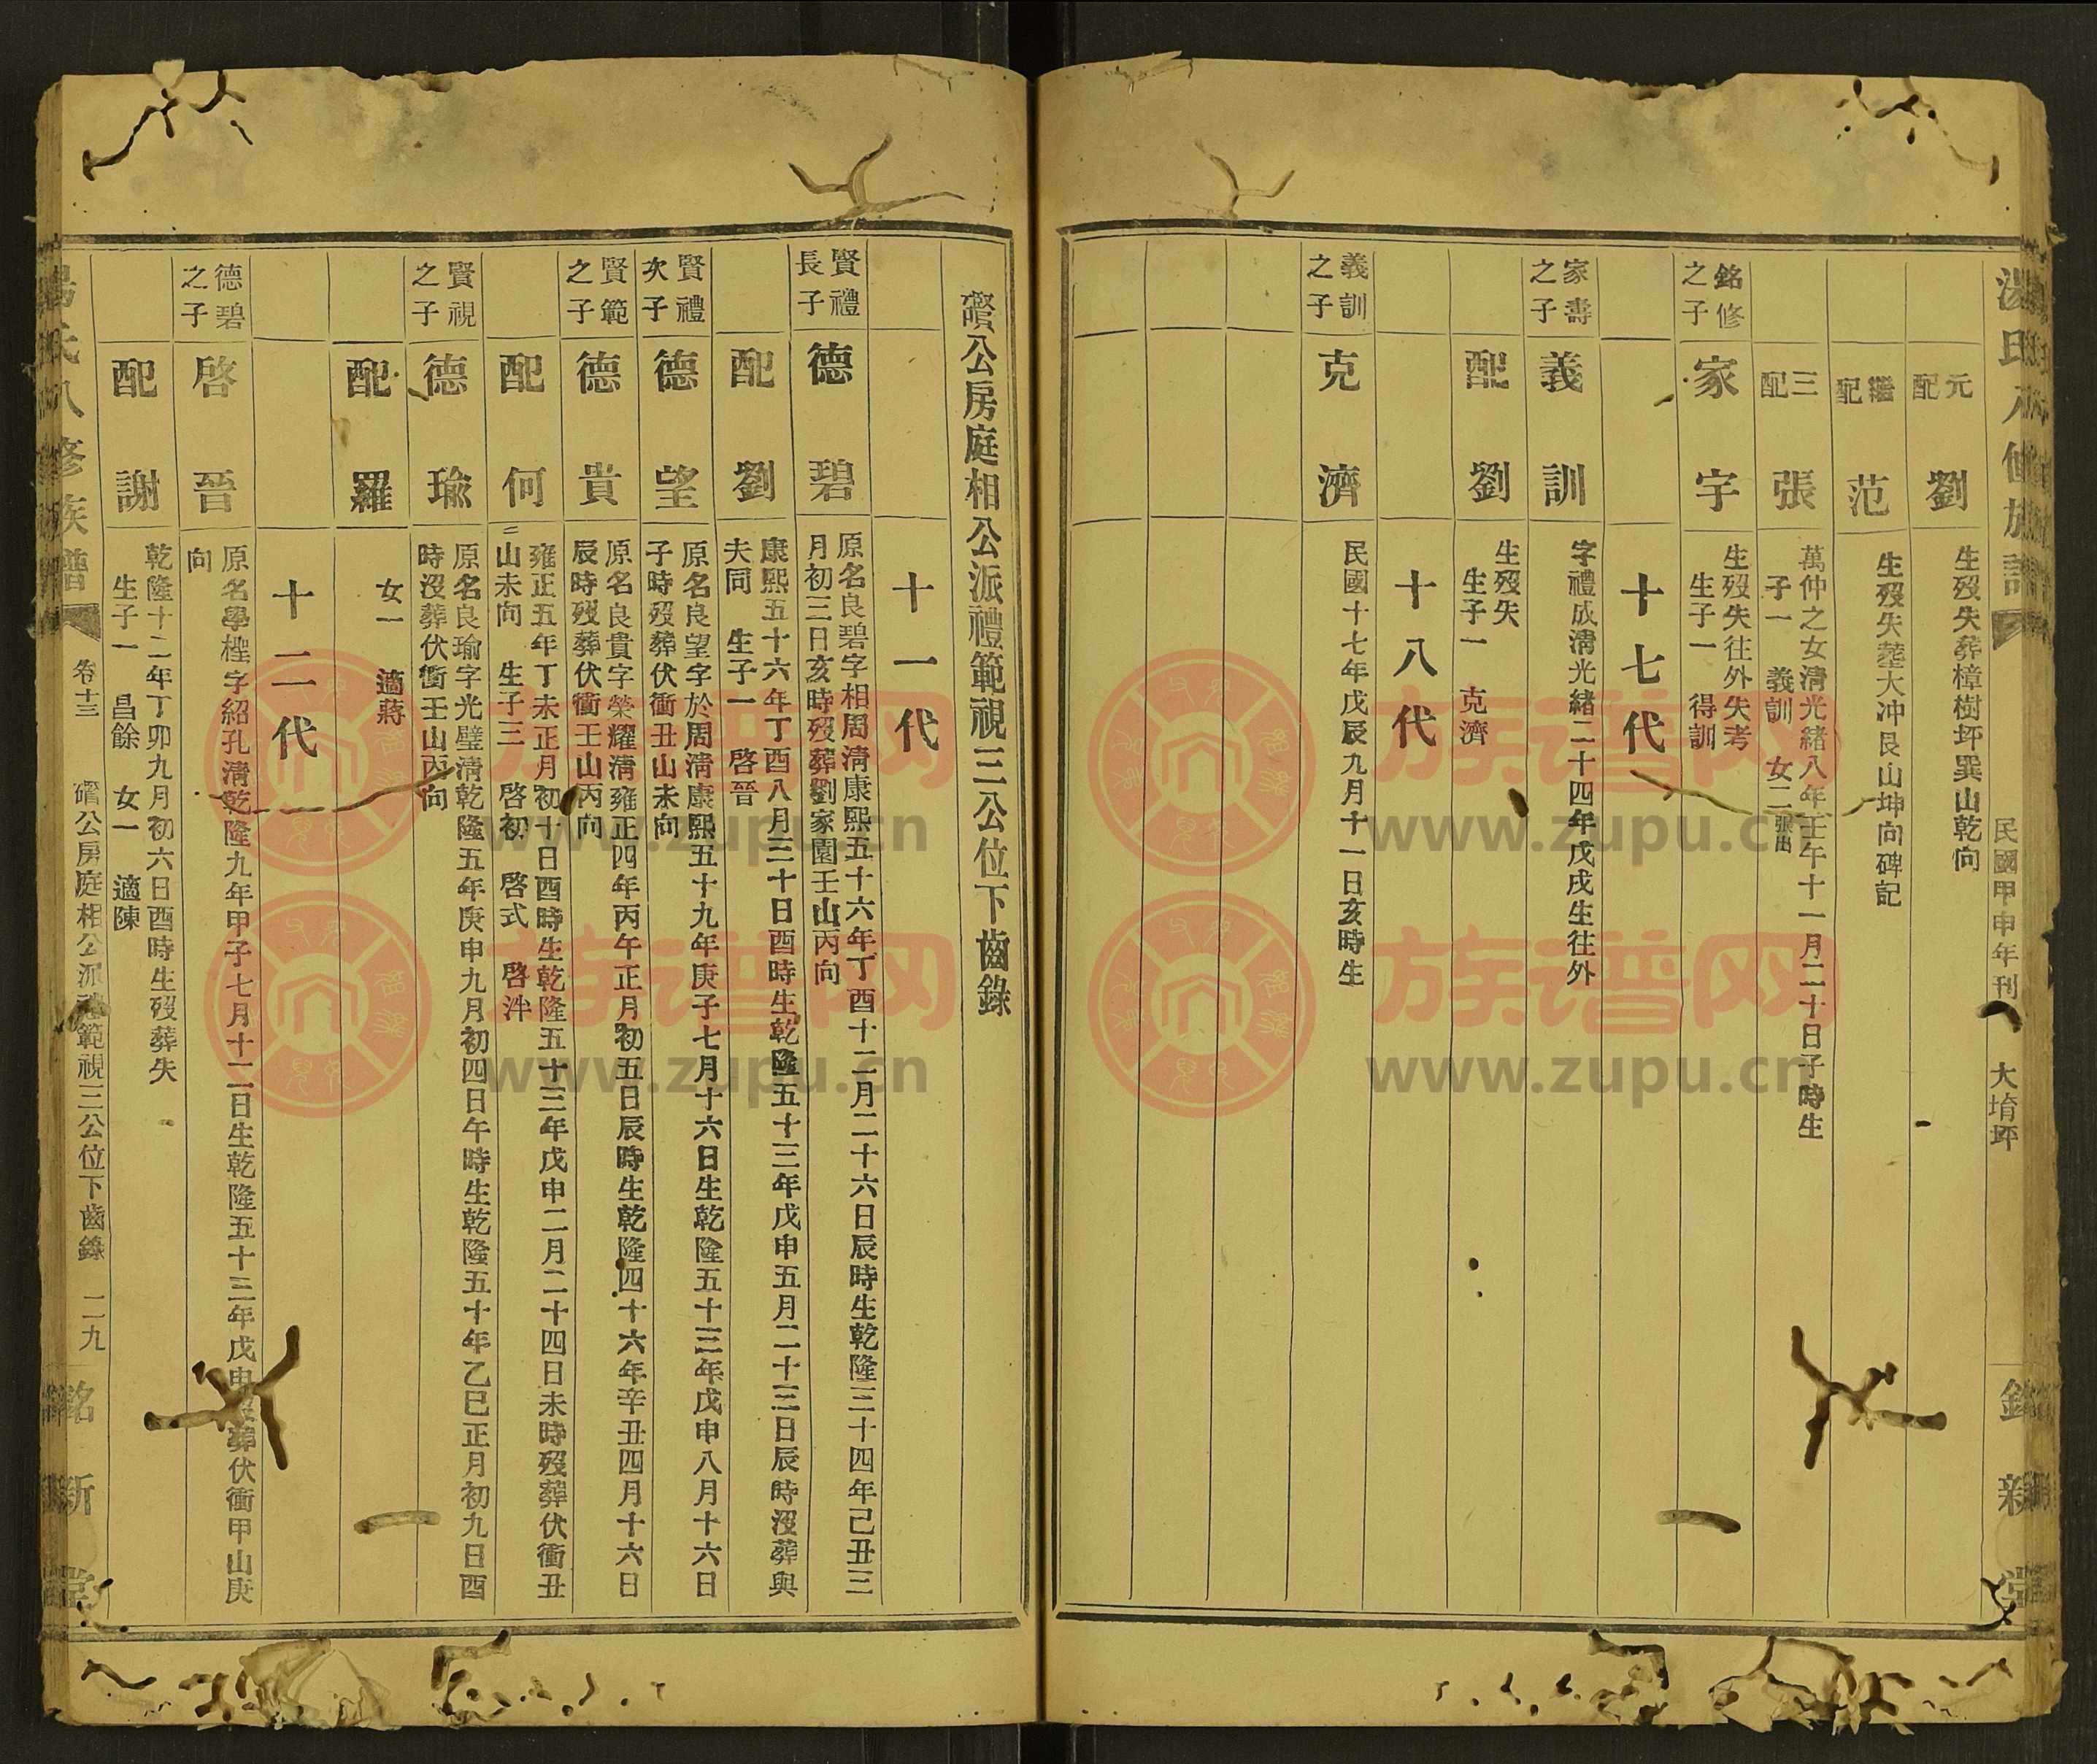 湯氏八修族譜
民國甲申年刊
大堉坪
銘新堂
元配 劉 生歿失葬樟樹坪巽山乾向
繼配 范 生歿失塟大冲艮山坤向碑記
三配 張 萬仲之女清光緒八年壬午十一月二十日子時生
子一 義訓 女二 張出
銘修之子 家字 生歿失往外失考
生子一 得訓
十七代
家壽之子 義訓 字禮成清光緒二十四年戊戌生往外
配 劉 生歿失
生子一 克濟
十八代
義訓之子 克濟 民國十七年戊辰九月十一日亥時生
公房庭相公派禮範視三公位下齒錄
十一代
賢禮長子 德碧 原名良碧字相周清康熙五十六年丁酉十二月二十六日辰時生乾隆三十四年己丑三
月初三日亥時歿葬劉家園壬山丙向
配 劉 康熙五十六年丁酉八月三十日酉時生乾隆五十三年戊申五月二十三日辰時沒葬與
夫同 生子一 啓晉
賢禮次子 德望 原名良望字於周清康熙五十九年庚子七月十六日生乾隆五十三年戊申八月十六日
子時歿葬伏衝丑山未向
賢範之子 德貴 原名良貴字榮耀清雍正四年丙午正月初五日辰時生乾隆四十六年辛丑四月十六日
辰時歿葬伏衝壬山丙向
配 何 雍正五年丁未正月初十日酉時生乾隆五十三年戊申二月二十四日未時歿葬伏衝丑
山未向 生子三 啓初 啓式 啓泮
賢視之子 德瑜 原名良瑜字光璧清乾隆五年庚申九月初四日午時生乾隆五十年乙巳正月初九日酉
時沒葬伏衝壬山丙向
配 羅
女一 適蔣
十二代
德碧之子 啓晉 原名學檉字紹孔清乾隆九年甲子七月十二日生乾隆五十三年戊申歿葬伏衝甲山庚
向
配 謝 乾隆十二年丁卯九月初六日酉時生歿葬失
生子一 昌餘 女一 適陳
湯氏八修族譜
卷十三
公房庭相公派禮範視三公位下齒錄
二九
銘新堂
族谱网
www.zupu.cn
族谱网
www.zupu.cn
族谱网
www.zupu.cn
族谱网
www.zupu.cn